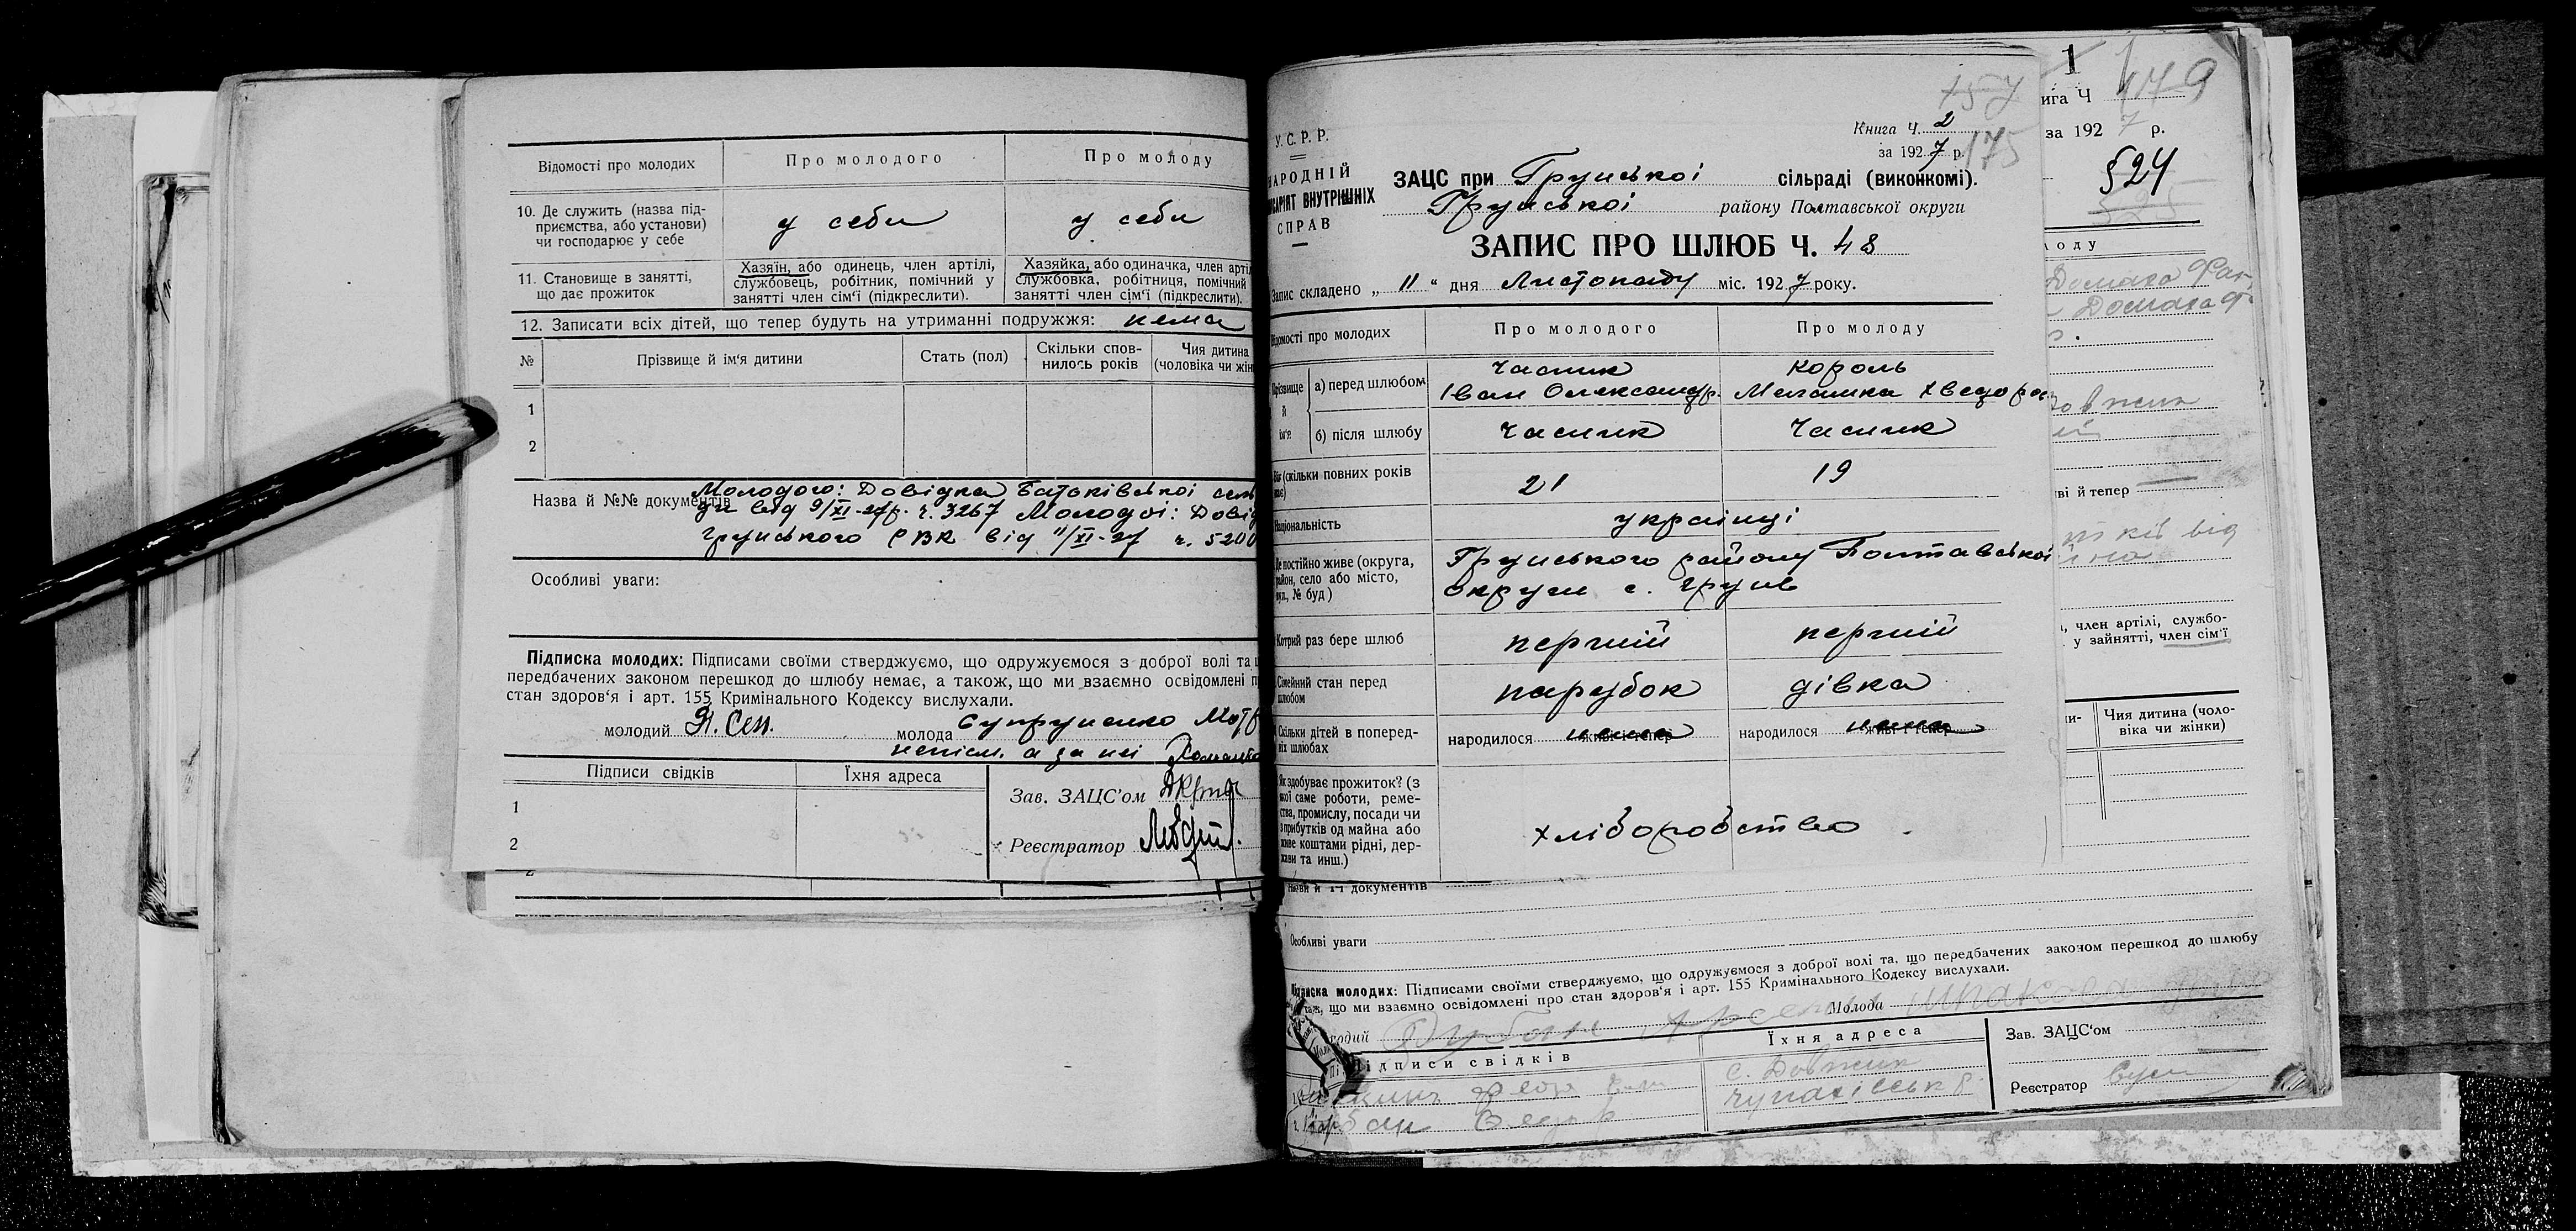 Відомості про молодих
Про молодого
Про молоду
10. Де служить (назва під-
приємства, або установи)
чи господарює у себе
у себи
у себи
11. Становище в занятті,
що дає прожиток
Хазяїн, або одинець, член артілі,
службовець, робітник, помічний у
занятті член сім'ї (підкреслити).
Хазяйка, або одиначка, член арті
службовка, робітниця, помічний
занятті член сім'ї (підкреслити).
12. Записати всіх дітей, що тепер будуть на утриманні подружжя: нема
№
Прізвище й ім'я дитини
Стать (пол)
Скільки спов-
нилось років
Чия дитина
(чоловіка чи жін
1
2
Назва й №№ документів
Молодого: Довідка Батьківської сель
ди від 9/XI-27р. ч. 3267 Молодої: Довід
Грунського РВК від 11/XI-27 ч. 5200
Особливі уваги:
Підписка молодих: Підписами своїми стверджуємо, що одружуємося з доброї волі та
передбачених законом перешкод до шлюбу немає, а також, що ми взаємно освідомлені п
стан здоров'я і арт. 155 Кримінального Кодексу вислухали.
молодий Я. Сеп.
молода Супруненко Мотр
неписм. а за неї
Підписи свідків
Їхня адреса
1
2
Зав. ЗАЦС'ом
Реєстратор
У.С.Р.Р.
НАРОДНІЙ
САРІЯТ ВНУТРІШНІХ
СПРАВ
157
Книга Ч. 2
за 1927 р.
175
ЗАЦС при Грунської сільраді (виконкомі).
Грунської району Полтавської округи
ЗАПИС ПРО ШЛЮБ Ч. 48
Запис складено „ 11 “ дня Листопаду міс. 1927 року.
Відомості про молодих
Про молодого
Про молоду
Прізвище
й
ім'я
а) перед шлюбом
Часник
Іван Олександр.
Король
Меланка Хведоро
б) після шлюбу
Часник
Часник
Вік (скільки повних років
має)
21
19
Національність
українці
Де постійно живе (округа,
район, село або місто,
вул., № буд)
Грунського району Полтавської
округи с. Грунь
Котрий раз бере шлюб
перший
перший
Сімейний стан перед
шлюбом
парубок
дівка
Скільки дітей в поперед-
ніх шлюбах
народилося
народилося
Як здобуває прожиток? (з
якої саме роботи, реме-
ства, промислу, посади чи
з прибутків од майна або
живе коштами рідні, дер-
жави та инш.)
хліборобство
1
ига Ч 179
за 1927 р.
§24
лоду
Домаха
Домаха
Довжик
ві й тепер
член артілі, службо-
у зайнятті, член сім'ї
Чия дитина (чоло-
віка чи жінки)
документів
Особливі уваги
Підписка молодих: Підписами своїми стверджуємо, що одружуємося з доброї волі та, що передбачених законом перешкод до шлюбу
також, що ми взаємно освідомлені про стан здоров'я і арт. 155 Кримінального Кодексу вислухали.
Молода
Підписи свідків
Їхня адреса
с. Довжик
Зав. ЗАЦС'ом
Реєстратор